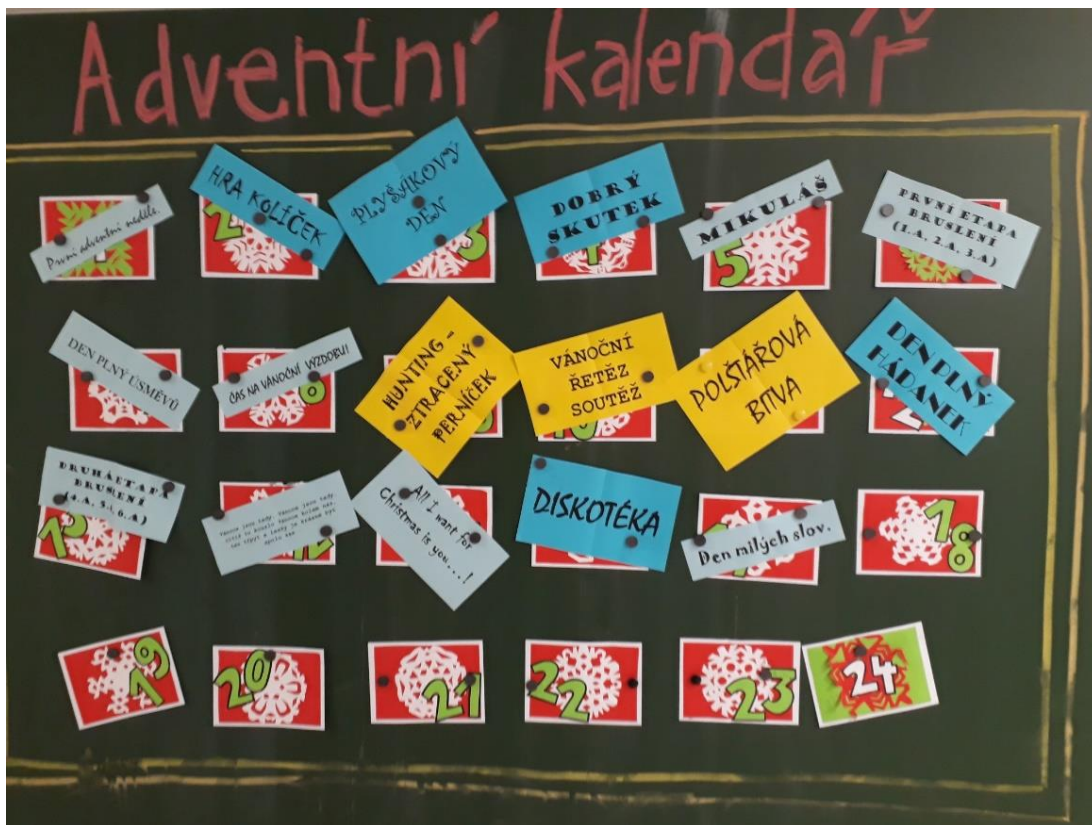 Adventní kalendář
První adventní neděle.
2
HRA KOLÍČEK
PLYŠÁKOVÝ
DEN
3
DOBRÝ
SKUTEK
MIKULÁŠ
5
PRVNÍ ETAPA
BRUSLENÍ
(1.A, 2.A, 3.A)
DEN PLNÝ ÚSMĚVŮ
ČAS NA VÁNOČNÍ VÝZDOBU!
8
HUNTING -
ZTRACENÝ
PERNÍČEK
VÁNOČNÍ
ŘETĚZ
SOUTĚŽ
10
POLŠTÁŘOVÁ
BITVA
DEN PLNÝ
HÁDANEK
2
DRUHÁ ETAPA
BRUSLENÍ
All I want for
Christmas is you...!
DISKOTÉKA
Den milých slov.
18
19
20
21
22
23
24